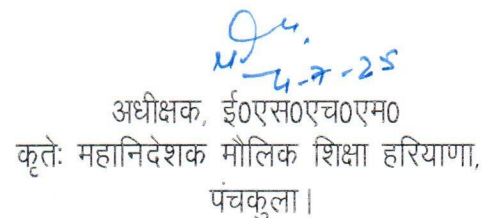 4-7-25
अधीक्षक, ई0एस0एच0एम0
कृतेः महानिदेशक मौलिक शिक्षा हरियाणा,
पंचकुला।